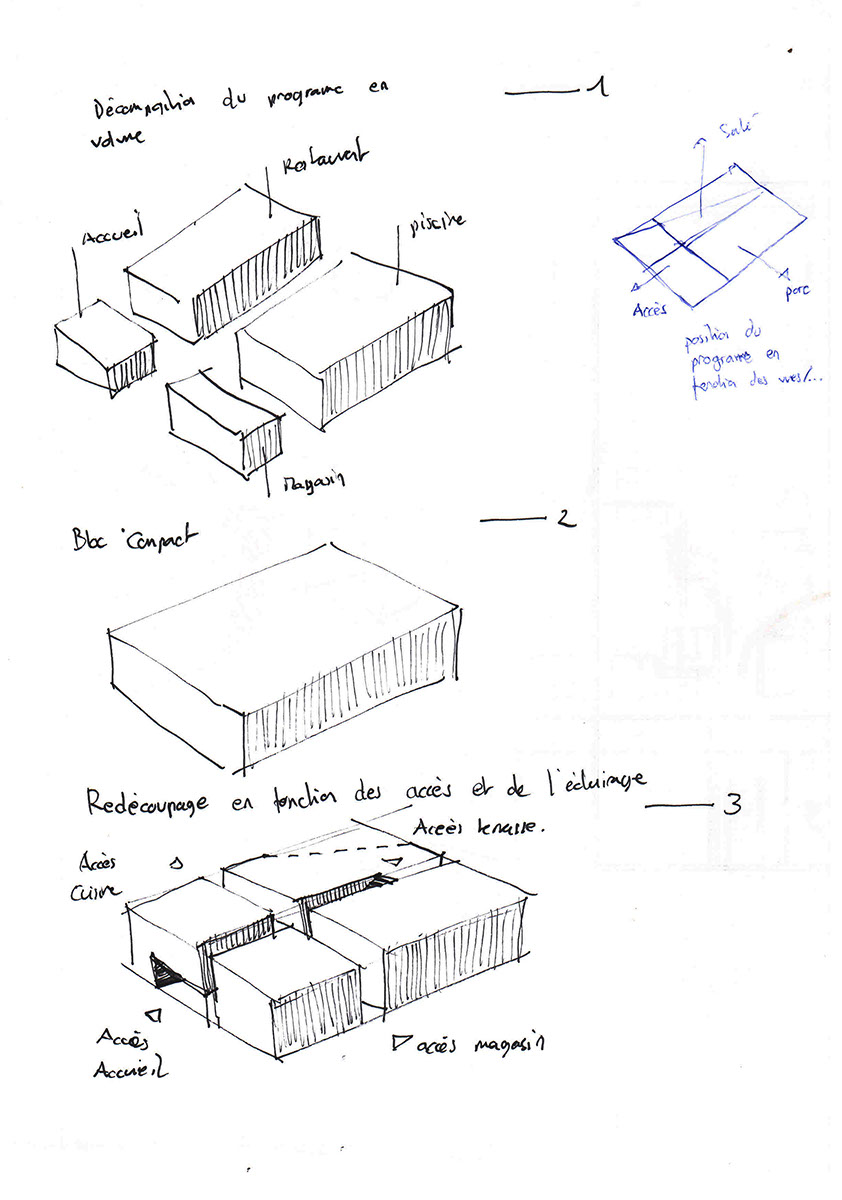 Décomposition du programe en
volume
1
Restaurant
Accueil
piscine
Magasin
Accès
parc
position du
programe en
fonction des vues/...
Bloc compact
2
Redécoupage en fonction des accès et de l'éclairage
3
Accès terrasse.
Accès
Cuisine
Accès
Accueil
accès magasin